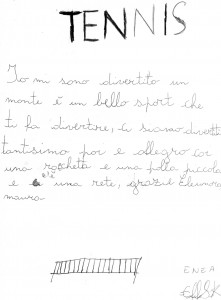 TENNIS
Io mi sono divertito un
monte è un bello sport che
ti fa divertire, ci siamo divertiti
tantissimo poi è allegro con
una racheta e una palla piccola
e c'è una rete, grazie Eleonora
maura
ENEA